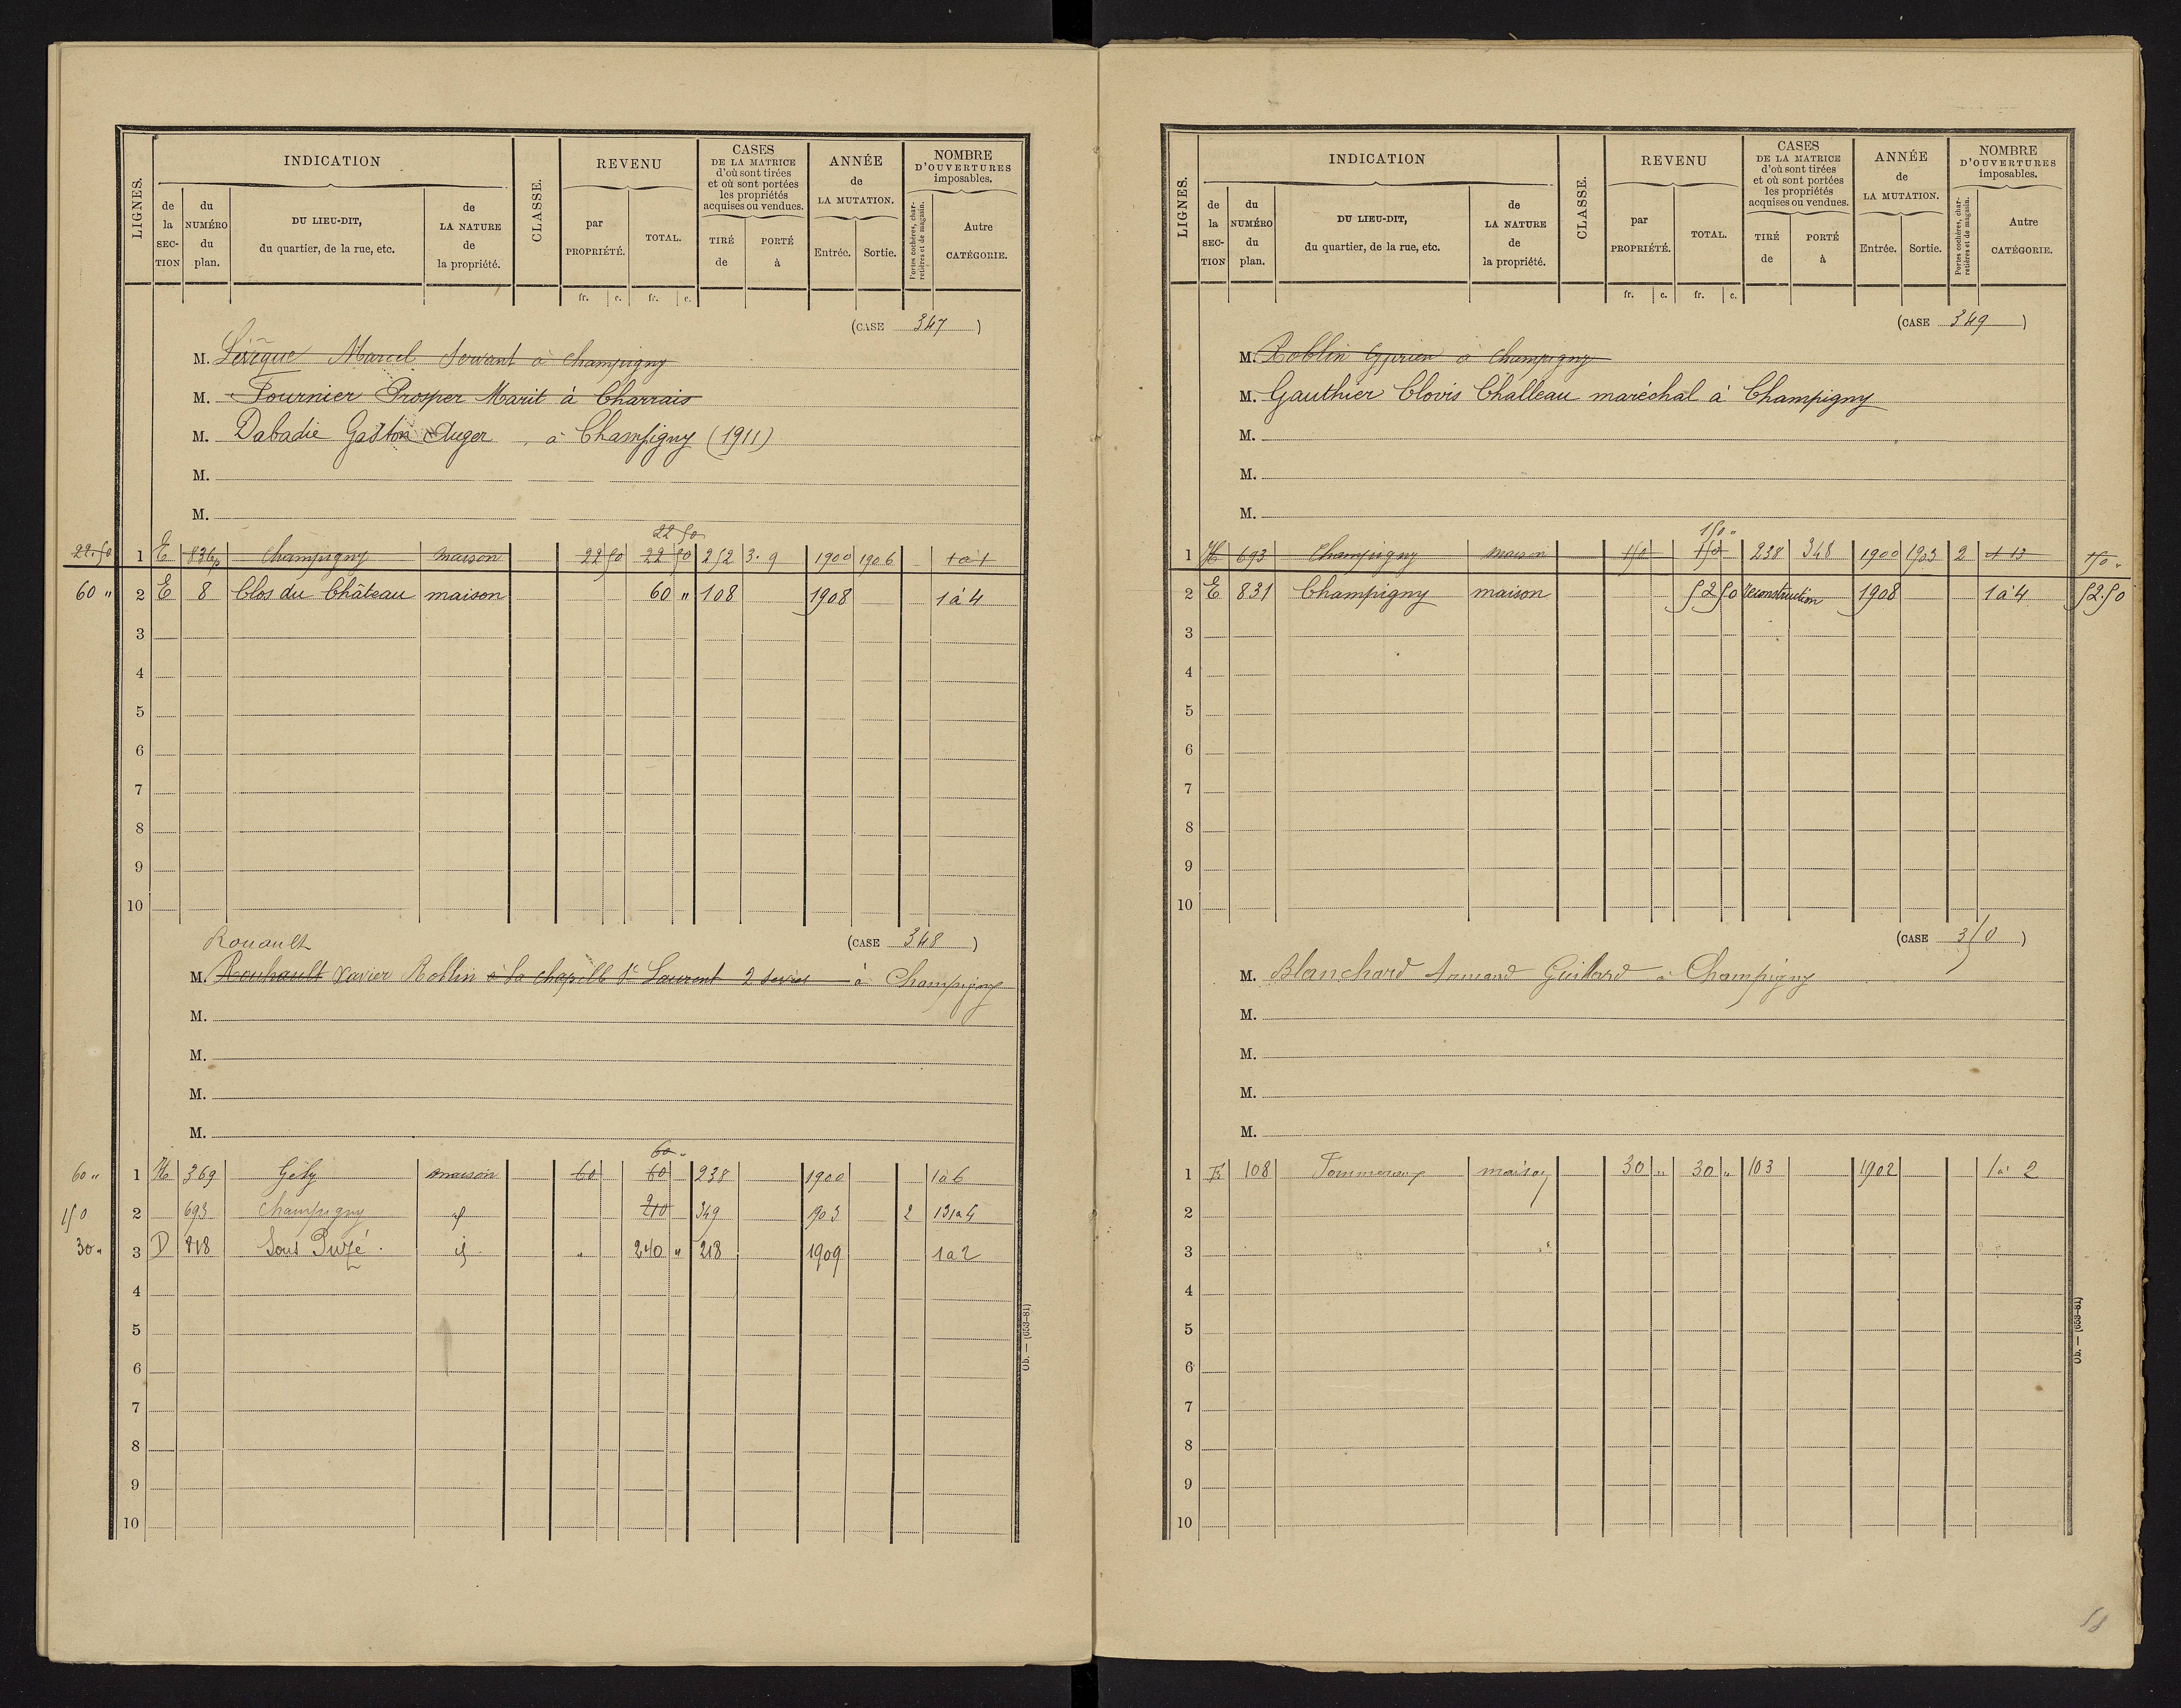 LIGNES.
INDICATION
de la SECTION
du NUMÉRO du plan.
DU LIEU-DIT, du quartier, de la rue, etc.
de LA NATURE de la propriété.
CLASSE.
REVENU
par PROPRIÉTÉ.
TOTAL.
fr. c. fr. c.
CASES DE LA MATRICE d'où sont tirées et où sont portées les propriétés acquises ou vendues.
TIRÉ de
PORTÉ à
ANNÉE de LA MUTATION.
Entrée. Sortie.
NOMBRE D'OUVERTURES imposables.
Portes cochères, charretières et de magasin.
Autre CATÉGORIE.
(CASE 347)
M. Marcel Servant à Champigny
M. Fournier Prosper Marit à Charrais
M. Dabadie Gaston Auger, à Champigny (1911)
M.
M.
22 50
22.50 1 E 836p Champigny maison 22 50 22 50 252 3.9 1900 1906 1 à 1
60 " 2 E 8 Clos du Château maison 60 " 108 1908 1 à 4
3
4
5
6
7
8
9
10
(CASE 348)
Rouault
M. Rouhault Xavier Roblin à la chapelle St Laurent 2 sevres à Champigny
M.
M.
M.
M.
60 "
60 " 1 H 369 Gély maison 60 60 238 1900 1 à 6
150 2 693 Champigny id 210 349 1903 2 13 à 4
30 " 3 D 818 Sous Puzé. id " 240 " 218 1909 1 a 2
4
5
6
7
8
9
10
Ob. — (653-81)
LIGNES.
INDICATION
de la SECTION
du NUMÉRO du plan.
DU LIEU-DIT, du quartier, de la rue, etc.
de LA NATURE de la propriété.
CLASSE.
REVENU
par PROPRIÉTÉ.
TOTAL.
fr. c. fr. c.
CASES DE LA MATRICE d'où sont tirées et où sont portées les propriétés acquises ou vendues.
TIRÉ de
PORTÉ à
ANNÉE de LA MUTATION.
Entrée. Sortie.
NOMBRE D'OUVERTURES imposables.
Portes cochères, charretières et de magasin.
Autre CATÉGORIE.
(CASE 349)
M. Roblin Cyprien à Champigny
M. Gauthier Clovis Challeau maréchal à Champigny
M.
M.
M.
150 "
1 H 693 Champigny maison 150 150 238 348 1900 1903 2 1 13 150 "
2 E 831 Champigny maison 52 50 reconstruction 1908 1 à 4 52.50
3
4
5
6
7
8
9
10
(CASE 350)
M. Blanchard Armand Guillard à Champigny
M.
M.
M.
M.
1 E 108 maison 30 " 30 " 103 1902 1 à 2
2
3
4
5
6
7
8
9
10
Ob. — (653-81)